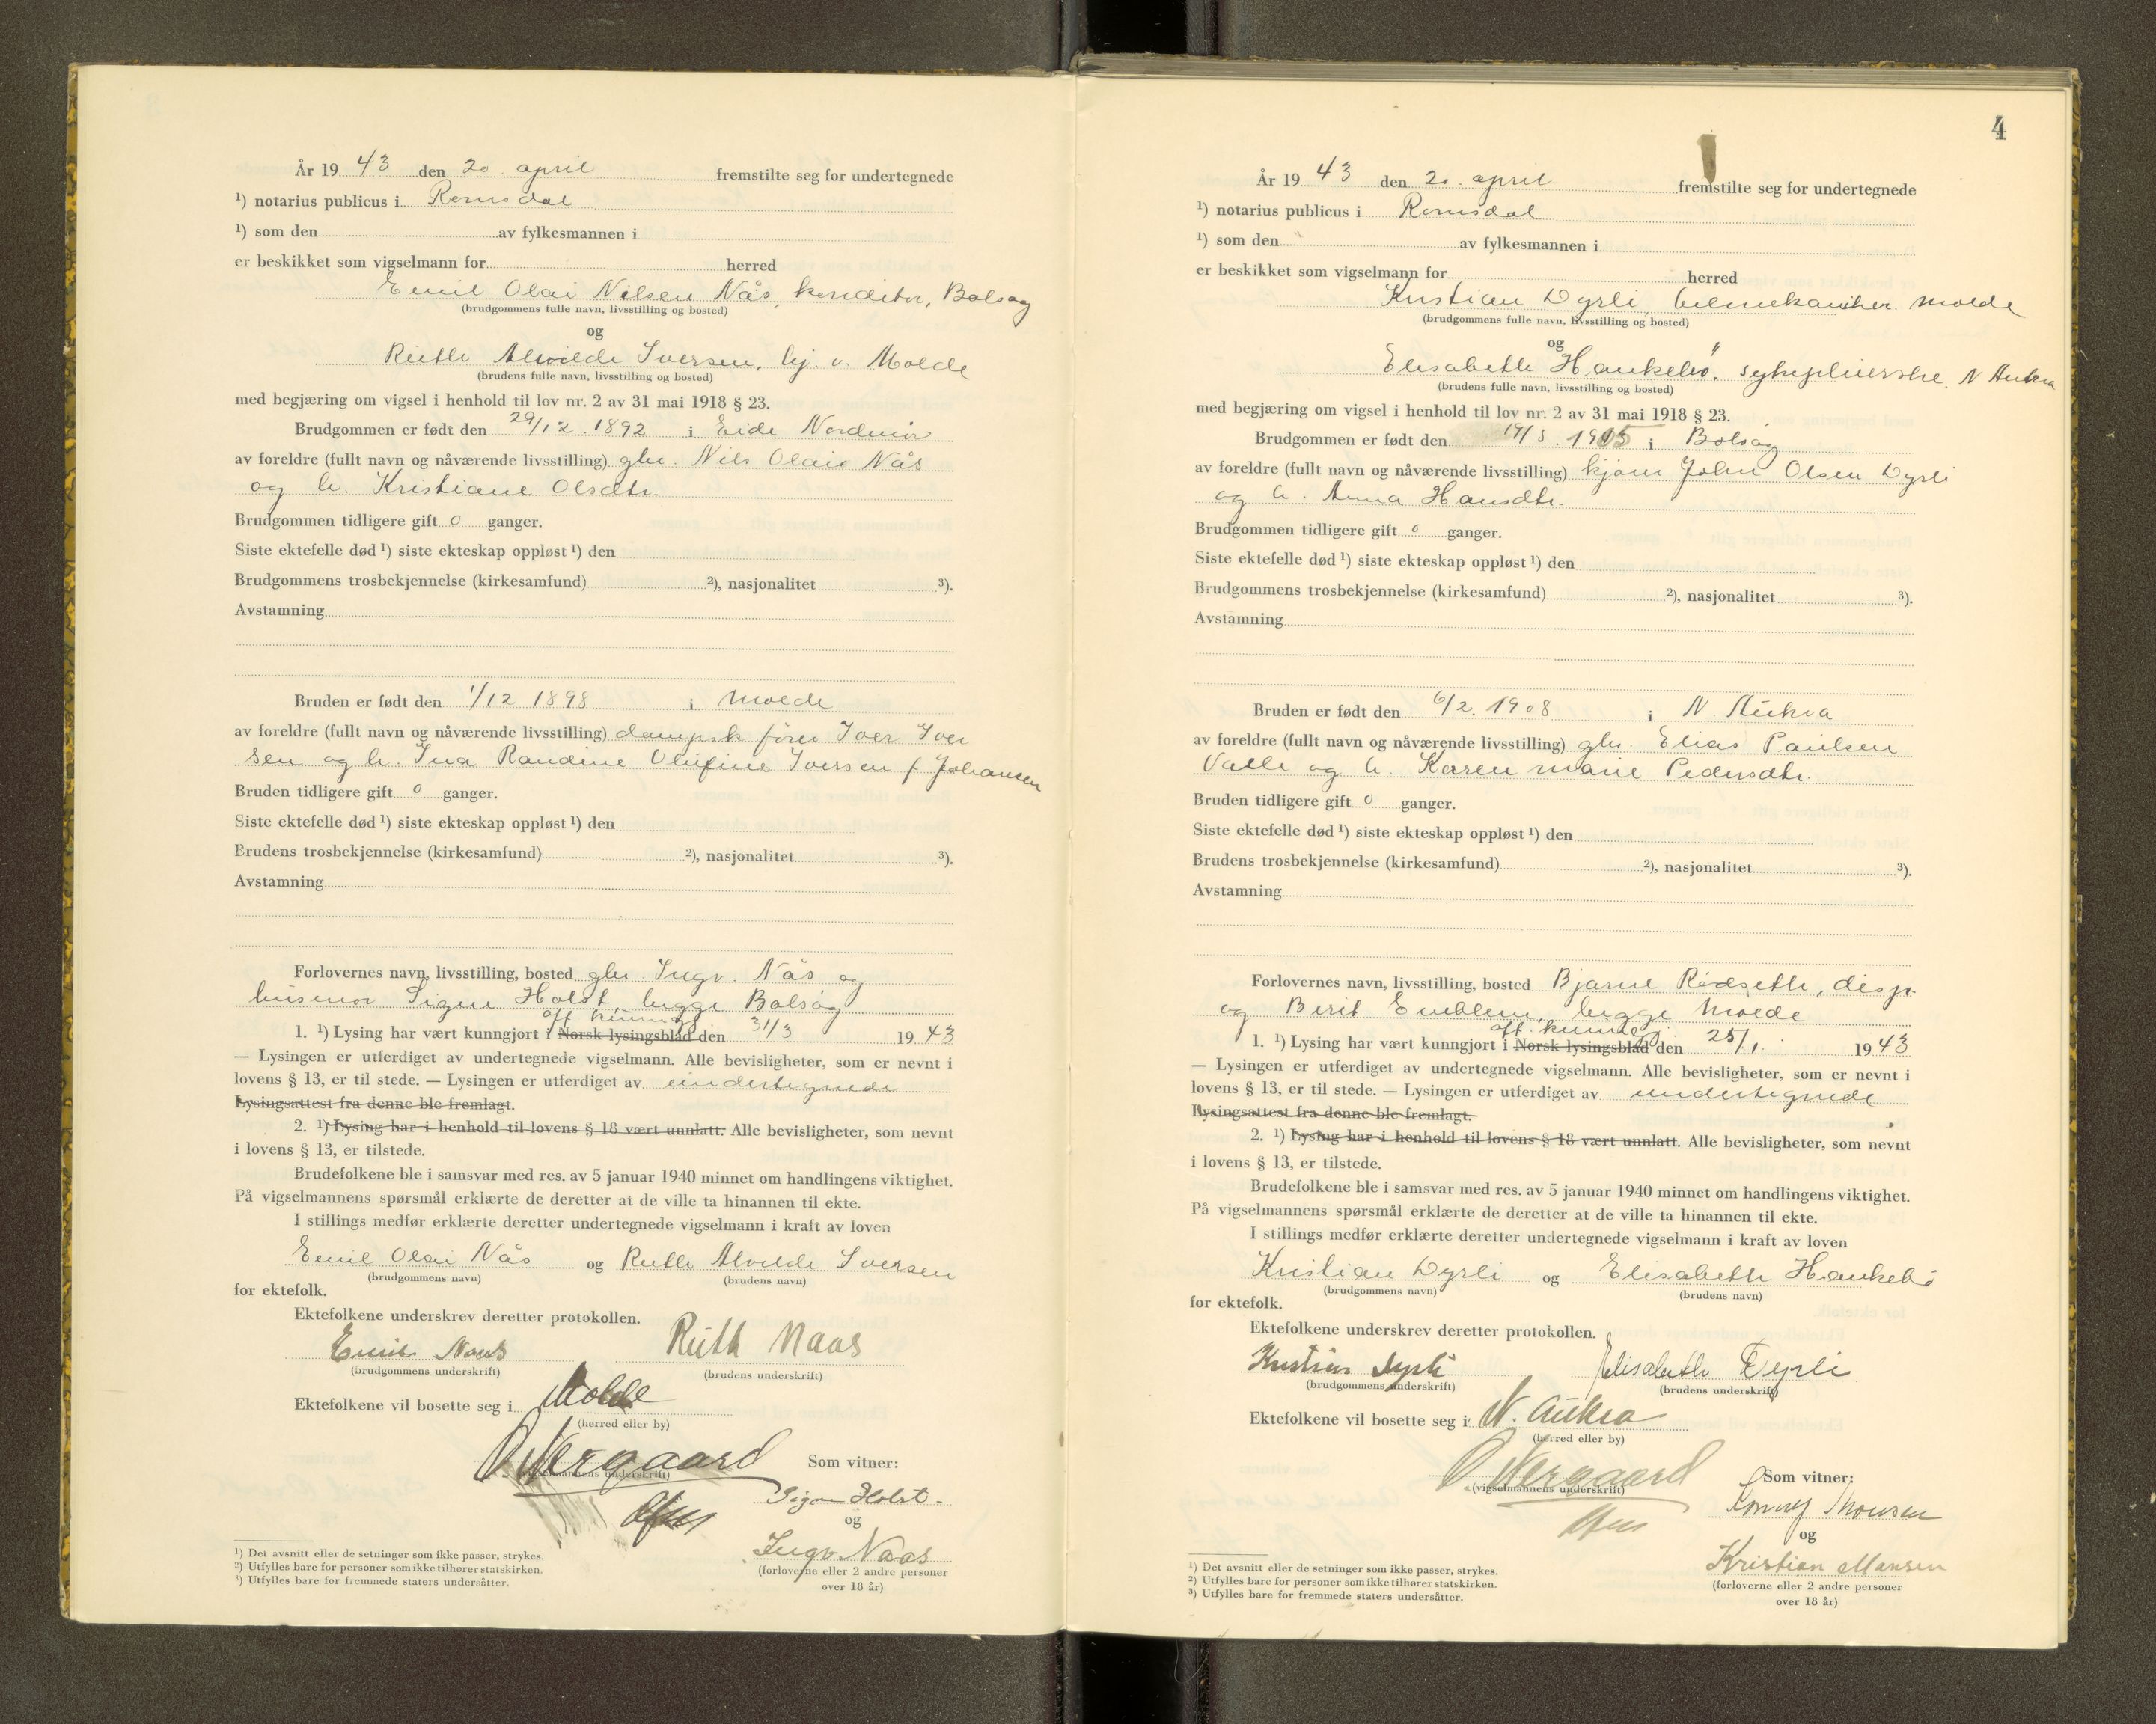 År 19 43 den 20 april fremstilte seg for undertegnede
¹) notarius publicus i Romsdal
¹) som den av fylkesmannen i
er beskikket som vigselmann for herred
Emil Olai Nilsen Nås, konditor, Bolsøy
(brudgommens fulle navn, livsstilling og bosted)
og
Ruth Alvilde Iversen, hj. v. Molde
(brudens fulle navn, livsstilling og bosted)
med begjæring om vigsel i henhold til lov nr. 2 av 31 mai 1918 § 23.
Brudgommen er født den 29/12. 1892 i Eide Nordmør
av foreldre (fullt navn og nåværende livsstilling) gbr. Nils Olaus Nås
og h. Kristiane Olsdtr.
Brudgommen tidligere gift 0 ganger.
Siste ektefelle død ¹) siste ekteskap oppløst ¹) den
Brudgommens trosbekjennelse (kirkesamfund) ²), nasjonalitet ³).
Avstamning
Bruden er født den 1/12 1898 i Molde
av foreldre (fullt navn og nåværende livsstilling) dampsk.fører Iver Iver
sen og h. Ina Randine Olufine Iversen f Johansen
Bruden tidligere gift 0 ganger.
Siste ektefelle død ¹) siste ekteskap oppløst ¹) den
Brudens trosbekjennelse (kirkesamfund) ²), nasjonalitet ³).
Avstamning
Forlovernes navn, livsstilling, bosted gbr Ingv. Nås og
husmor Signe Holst, begge Bolsøy
off. kunngj.
1. ¹) Lysing har vært kunngjort i Norsk lysingsblad den 31/3 19 43
— Lysingen er utferdiget av undertegnede vigselmann. Alle bevisligheter, som er nevnt i
lovens § 13, er til stede. — Lysingen er utferdiget av undertegnede
Lysingsattest fra denne ble fremlagt.
2. ¹) Lysing har i henhold til lovens § 18 vært unnlatt. Alle bevisligheter, som nevnt
i lovens § 13, er tilstede.
Brudefolkene ble i samsvar med res. av 5 januar 1940 minnet om handlingens viktighet.
På vigselmannens spørsmål erklærte de deretter at de ville ta hinannen til ekte.
I stillings medfør erklærte deretter undertegnede vigselmann i kraft av loven
Emil Olai Nås og Ruth Alvilde Iversen
(brudgommens navn) (brudens navn)
for ektefolk.
Ektefolkene underskrev deretter protokollen.
Emil Naas Ruth Naas
(brudgommens underskrift) (brudens underskrift)
Ektefolkene vil bosette seg i Molde
(herred eller by)
O Nergaard Som vitner:
(vigselmannens underskrift)
Signe Holst.
og
Ingv Naas
(forloverne eller 2 andre personer
over 18 år)
¹) Det avsnitt eller de setninger som ikke passer, strykes.
²) Utfylles bare for personer som ikke tilhører statskirken.
³) Utfylles bare for fremmede staters undersåtter.
4
År 19 43 den 20. april fremstilte seg for undertegnede
¹) notarius publicus i Romsdal
¹) som den av fylkesmannen i
er beskikket som vigselmann for herred
Kristian Dyrli, bilmekaniker. Molde
(brudgommens fulle navn, livsstilling og bosted)
og
Elisabeth Haukebø, sykepleierske, N Aukra
(brudens fulle navn, livsstilling og bosted)
med begjæring om vigsel i henhold til lov nr. 2 av 31 mai 1918 § 23.
Brudgommen er født den 1905 i Bolsøy
av foreldre (fullt navn og nåværende livsstilling) John Olsen Dyrli
og h. Anna Hansdtr.
Brudgommen tidligere gift 0 ganger.
Siste ektefelle død ¹) siste ekteskap oppløst ¹) den
Brudgommens trosbekjennelse (kirkesamfund) ²), nasjonalitet ³).
Avstamning
Bruden er født den 6/2. 1908 i N. Aukra
av foreldre (fullt navn og nåværende livsstilling) gbr. Elias Paulsen
Valle og h. Karen Marie Pedersdtr.
Bruden tidligere gift 0 ganger.
Siste ektefelle død ¹) siste ekteskap oppløst ¹) den
Brudens trosbekjennelse (kirkesamfund) ²), nasjonalitet ³).
Avstamning
Forlovernes navn, livsstilling, bosted Bjarne Rødseth, disp.
og Berit Emblem, begge Molde
off. kunngj.
1. ¹) Lysing har vært kunngjort i Norsk lysingsblad den 25/1. 19 43
— Lysingen er utferdiget av undertegnede vigselmann. Alle bevisligheter, som er nevnt i
lovens § 13, er til stede. — Lysingen er utferdiget av undertegnede
Lysingsattest fra denne ble fremlagt.
2. ¹) Lysing har i henhold til lovens § 18 vært unnlatt. Alle bevisligheter, som nevnt
i lovens § 13, er tilstede.
Brudefolkene ble i samsvar med res. av 5 januar 1940 minnet om handlingens viktighet.
På vigselmannens spørsmål erklærte de deretter at de ville ta hinannen til ekte.
I stillings medfør erklærte deretter undertegnede vigselmann i kraft av loven
Kristian Dyrli og Elisabeth Haukebø
(brudgommens navn) (brudens navn)
for ektefolk.
Ektefolkene underskrev deretter protokollen.
Kristian Dyrli Elisabeth Dyrli
(brudgommens underskrift) (brudens underskrift)
Ektefolkene vil bosette seg i N. Aukra
(herred eller by)
O Nergaard Som vitner:
(vigselmannens underskrift)
og
Kristian Hansen
(forloverne eller 2 andre personer
over 18 år)
¹) Det avsnitt eller de setninger som ikke passer, strykes.
²) Utfylles bare for personer som ikke tilhører statskirken.
³) Utfylles bare for fremmede staters undersåtter.